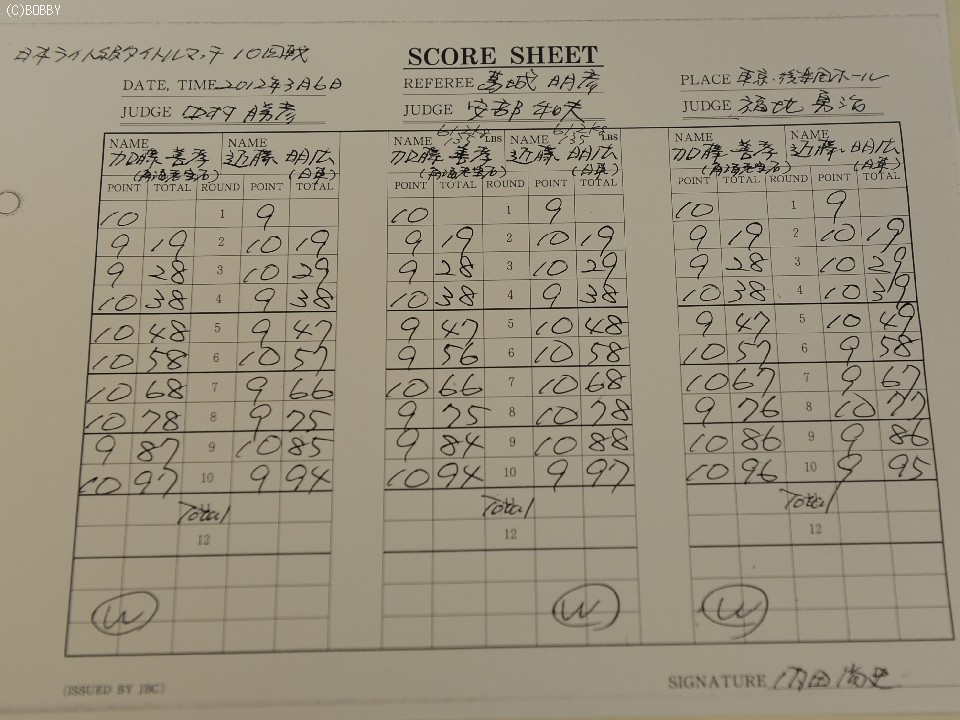 (C)BOBBY
日本ライト級タイトルマッチ 10回戦
SCORE SHEET
DATE, TIME 2012年3月6日 REFEREE 葛城 明彦 PLACE 東京・後楽園ホール
JUDGE 田村 勝彦 JUDGE 安部 和夫 JUDGE 福地 勇治
135 LBS 135
NAME NAME NAME NAME NAME NAME
加藤善孝 近藤明広 加藤善孝 近藤明広 加藤善孝 近藤明広
(角海老宝石) (日東) (角海老宝石) (日東) (角海老宝石) (日東)
POINT TOTAL ROUND POINT TOTAL POINT TOTAL ROUND POINT TOTAL POINT TOTAL ROUND POINT TOTAL
10 1 9 10 1 9 10 1 9
9 19 2 10 19 9 19 2 10 19 9 19 2 10 19
9 28 3 10 29 9 28 3 10 29 9 28 3 10 29
10 38 4 9 38 10 38 4 9 38 10 38 4 10 39
10 48 5 9 47 9 47 5 10 48 9 47 5 10 49
10 58 6 10 57 9 56 6 10 58 10 57 6 9 58
10 68 7 9 66 10 66 7 10 68 10 67 7 9 67
10 78 8 9 75 9 75 8 10 78 9 76 8 10 77
9 87 9 10 85 9 84 9 10 88 10 86 9 9 86
10 97 10 9 94 10 94 10 9 97 10 96 10 9 95
Total Total Total
12 12 12
W W W
(ISSUED BY JBC) SIGNATURE 内田尚史